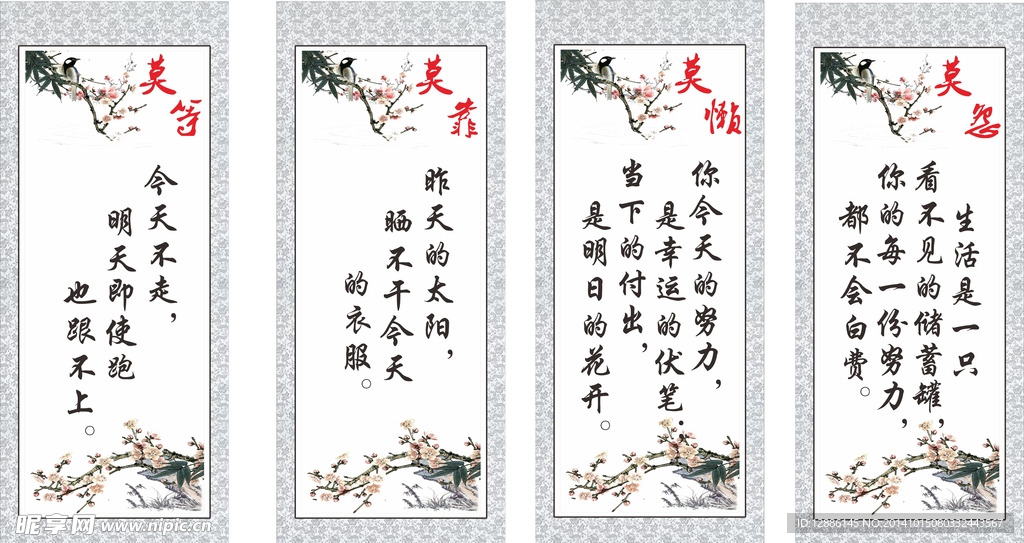 莫
等
今天不走，
明天即使跑
也跟不上。
莫
靠
昨天的太阳，
晒不干今天
的衣服。
莫
懒
你今天的努力，
是幸运的伏笔.
当下的付出，
是明日的花开。
莫
怨
生活是一只
看不见的储蓄罐，
你的每一份努力，
都不会白费。
昵享网 www.nipic.cn
ID:12886145 NO:20141015080332443567